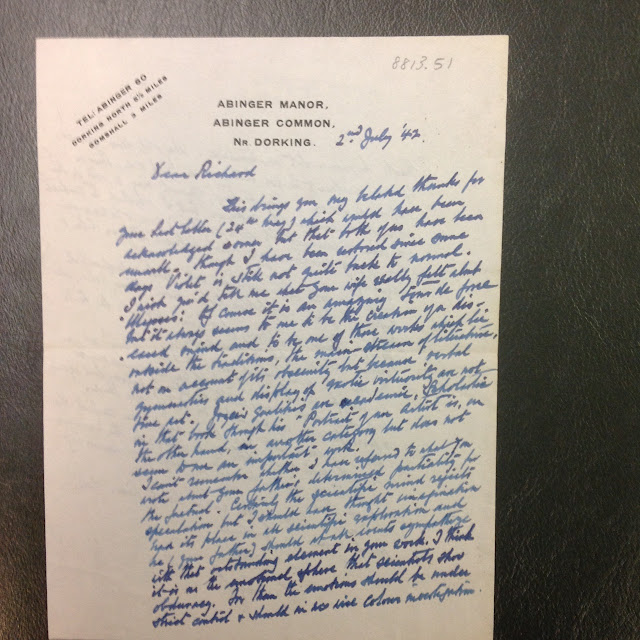 8813.51
TEL: ABINGER 60
DORKING NORTH 5½ MILES
GOMSHALL 3 MILES
ABINGER MANOR,
ABINGER COMMON,
NR. DORKING.
2nd July '42.
Dear Richard
This brings you my belated thanks for
your last letter (24th May) which would have been
acknowledged sooner but that both of us have been
unwell, though I have been restored since some
days Violet is still not quite back to normal.
I wish you'd tell me what your wife really felt about
Ulysses! Of course it is an amazing tour de force
but it always seems to me to be the creation of a dis-
eased mind and to be one of those works which lie
outside the traditions, the main stream of literature,
not on account of its obscenity but because verbal
gymnastics and display of erotic virtuosity are not
fine art. Joyce's qualities are academic, Scholastic
in that book though his Portrait of an Artist is, on
the other hand, in another category but does not
seem to me an important work.
I can't remember whether I have referred to what you
wrote about your father's determined partiality for
the factual. Certainly the scientific mind rejects
speculation but I should have thought imagination
had its place in all scientific exploration and
he (your father) should at all events sympathise
with that outstanding element in your work. I think
it is in the emotional sphere that scientists show
obduracy. For them the emotions should be under
strict control & should in no wise colour investigation.